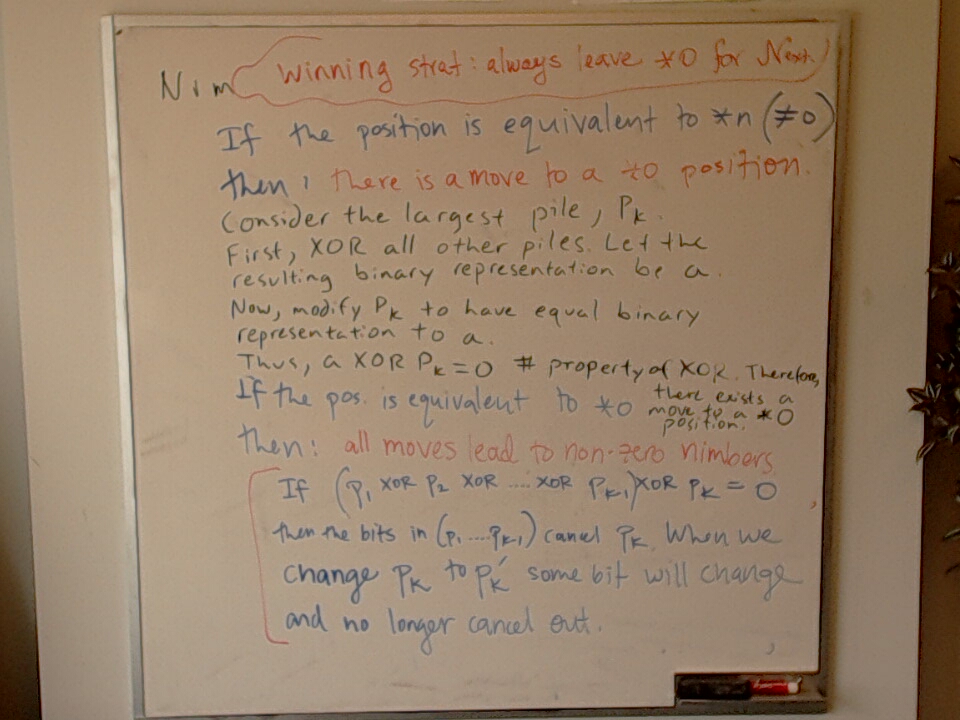 Nim Winning strat: always leave *0 for Next
If the position is equivalent to *n (≠0)
then: there is a move to a *0 position.
Consider the largest pile, Pk.
First, XOR all other piles. Let the
resulting binary representation be a.
Now, modify Pk to have equal binary
representation to a.
Thus, a XOR Pk = 0 # property of XOR. Therefore,
there exists a
move to a *0
position.
If the pos. is equivalent to *0
then: all moves lead to non-zero nimbers
If (P1 XOR P2 XOR .... XOR Pk-1) XOR Pk = 0
then the bits in (P1 .... Pk-1) cancel Pk. When we
change Pk to Pk' some bit will change
and no longer cancel out.